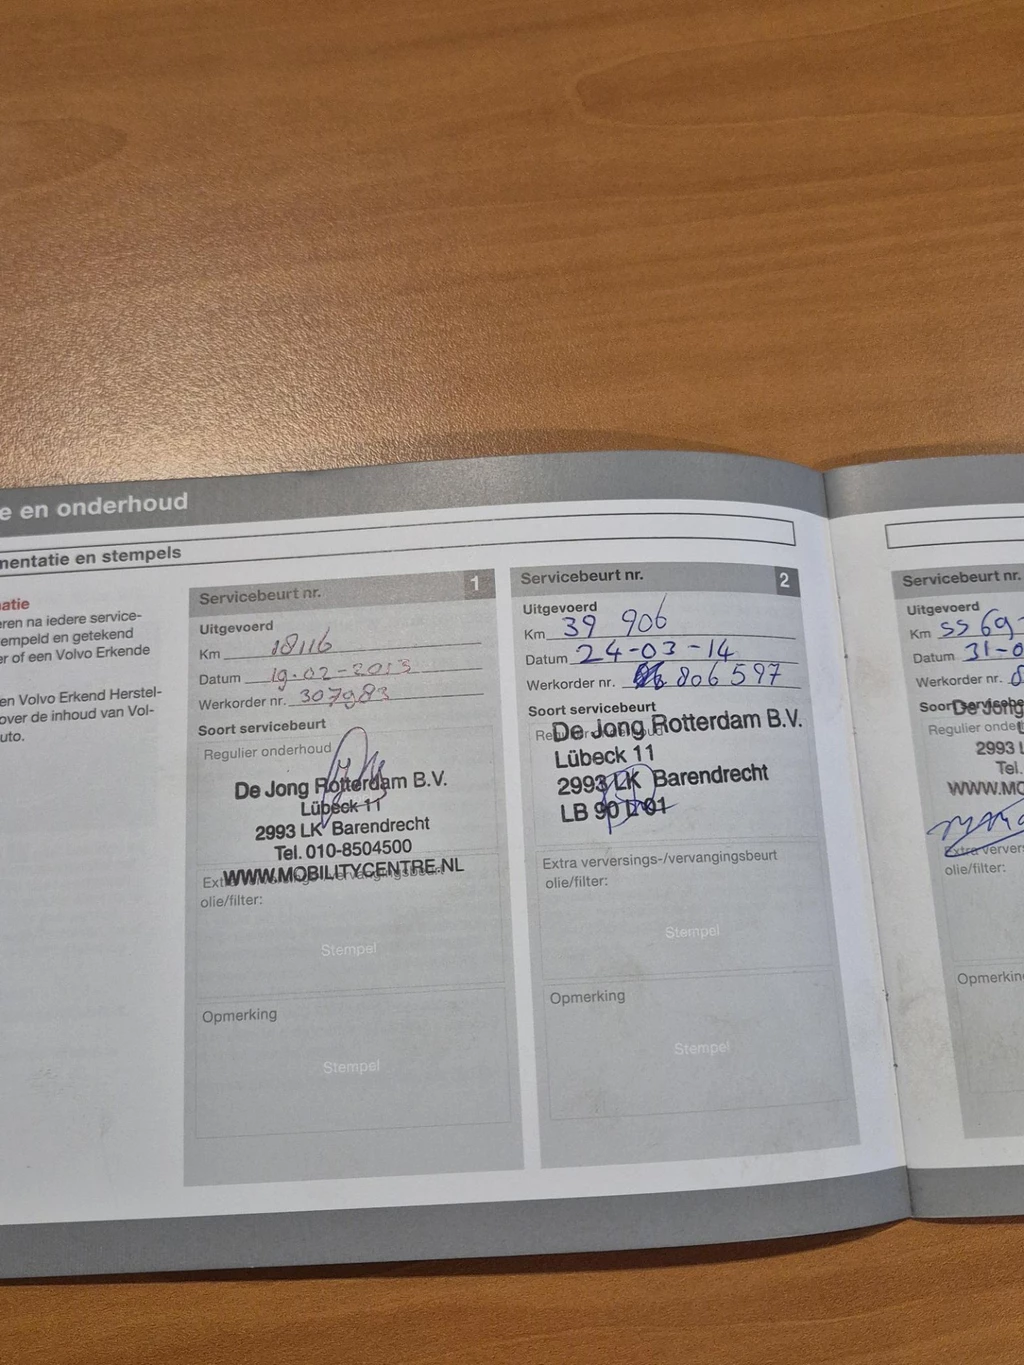 e en onderhoud
mentatie en stempels
atie
eren na iedere service-
empeld en getekend
er of een Volvo Erkende
en Volvo Erkend Herstel-
over de inhoud van Vol-
uto.
Servicebeurt nr. 1
Uitgevoerd
Km 18116
Datum 19-02-2013
Werkorder nr. 307983
Soort servicebeurt
Regulier onderhoud
De Jong Rotterdam B.V.
Lübeck 11
2993 LK Barendrecht
Tel. 010-8504500
WWW.MOBILITYCENTRE.NL
Extra verversings-/vervangingsbeurt
olie/filter:
Stempel
Opmerking
Stempel
Servicebeurt nr. 2
Uitgevoerd
Km 39 906
Datum 24-03-14
Werkorder nr. 806597
Soort servicebeurt
Regulier onderhoud
De Jong Rotterdam B.V.
Lübeck 11
2993 LK Barendrecht
LB 90 L 01
Extra verversings-/vervangingsbeurt
olie/filter:
Stempel
Opmerking
Stempel
Servicebeurt nr.
Uitgevoerd
Km 55 69
Datum 31-0
Werkorder nr.
Soort servicebe
De Jong
Regulier onde
2993 L
Tel.
WWW.MO
Extra ververs
olie/filter:
Opmerkin